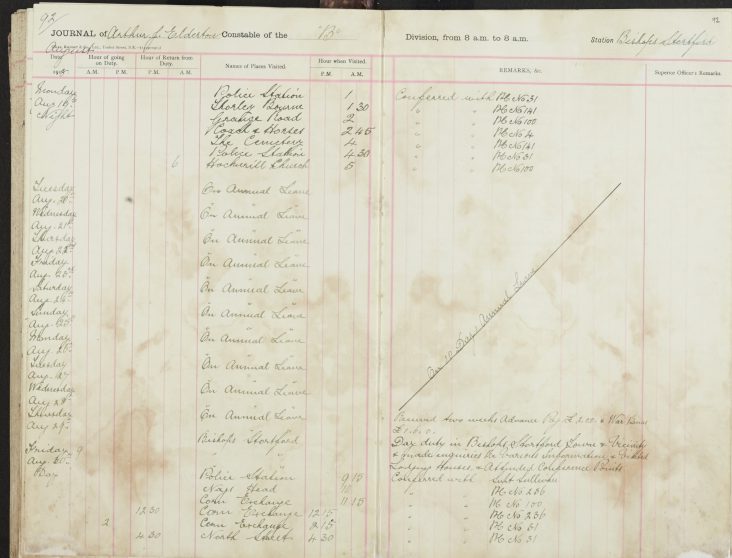 92 92
JOURNAL of Arthur J. Elderton Constable of the "B" Division, from 8 a.m. to 8 a.m. Station Bishops Stortford
August
Date Hour of going on Duty. Hour of Return from Duty. Names of Places Visited. Hour when Visited. REMARKS, &c. Superior Officer's Remarks.
A.M. P.M. P.M. A.M. P.M. A.M.
Monday Police Station 1 Conferred with PC No 31
Aug 19th Thorley Bourne 1 30 " PC No 141
Night Grange Road 2 " PC No 100
Coach & Horses 2 45 " PC No 4
The Cemetery 4 " PC No 141
Police Station 4 30 " PC No 31
6 Hockerill Church 5 " PC No 100
Tuesday On Annual Leave
Aug. 20th
Wednesday On Annual Leave
Aug. 21st
Thursday On Annual Leave
Aug. 22nd
Friday On Annual Leave
Aug. 23rd
Saturday On Annual Leave
Aug. 24th
Sunday On Annual Leave
Aug. 25th
Monday On Annual Leave
Aug. 26th
Tuesday On Annual Leave
Aug. 27
Wednesday On Annual Leave
Aug. 28
Thursday On Annual Leave
Aug. 29
On 10 Days Annual Leave
Received two weeks Advance Pay & War Bonus
Bishops Stortford Day duty in Bishops Stortford Town & Vicinity
Friday 9 " " & made enquiries Re Various Information & Visited
Aug. 30 Lodging Houses & Attended Conference Points
Day Police Station 9 15 Conferred with Supt Sullivan
Nags Head 10 " PC No 236
Corn Exchange 11 15 " PC No 100
12 30 Corn Exchange 12 15 " PC No 236
2 Corn Exchange 2 15 " PC No 31
4 30 North Street 4 30 " PC No 31